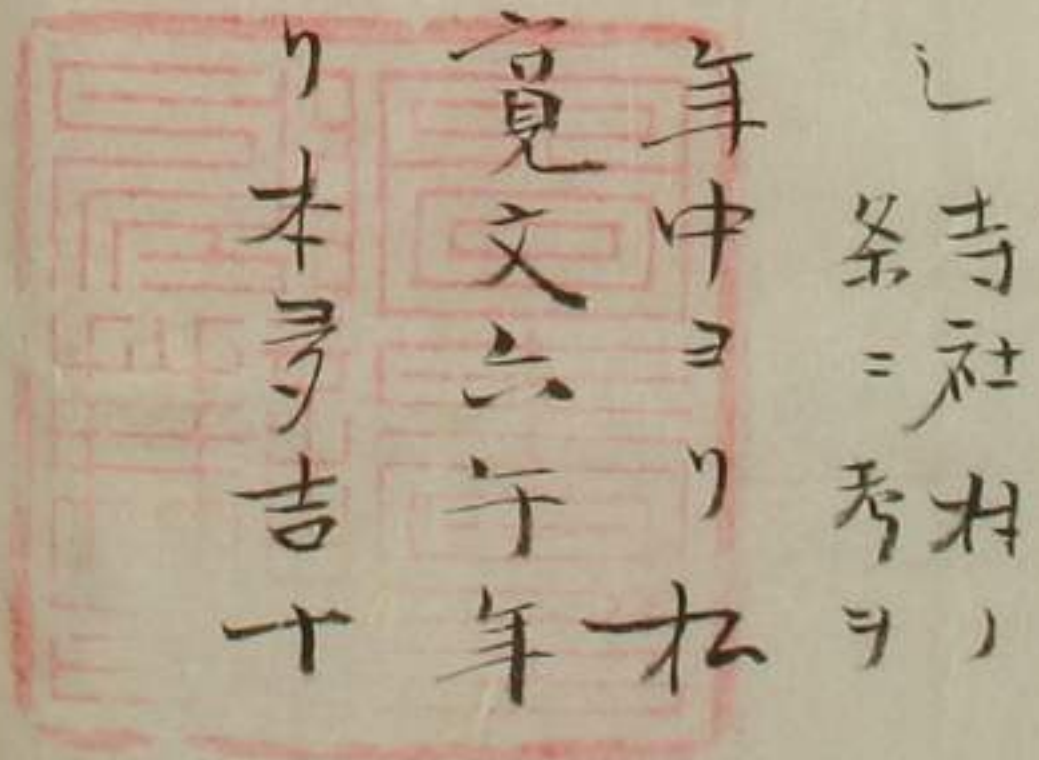 し寺社村ノ
条ニ考ヲ
年中ヨリ松
寛文六午年
リ本多吉十